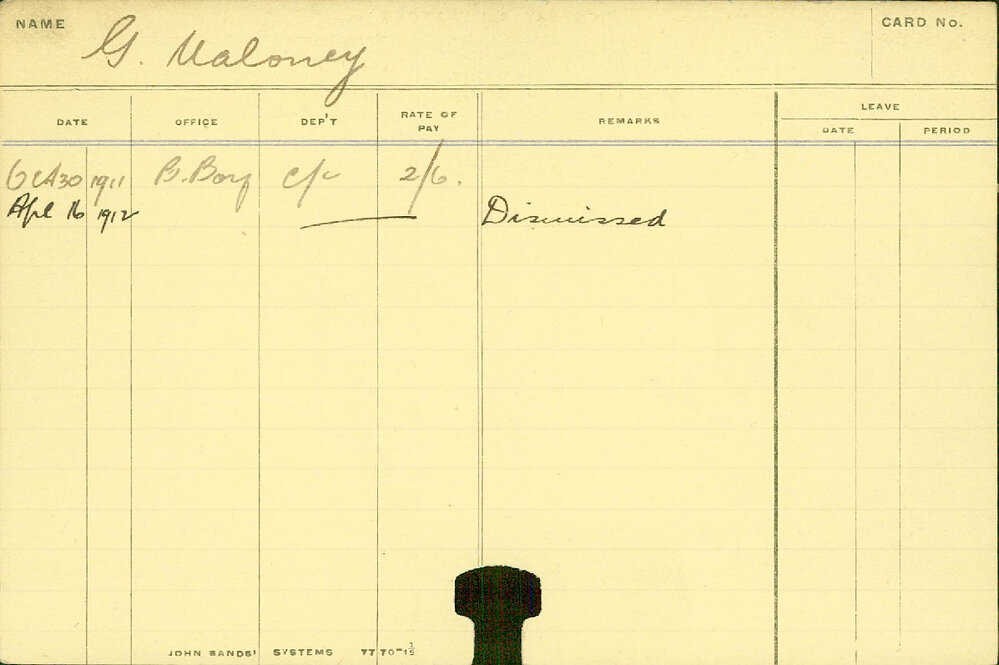 NAME G. Maloney CARD No.
LEAVE
DATE OFFICE DEP'T RATE OF PAY REMARKS DATE PERIOD
Oct 30 1911 B. Boy c/c 2/6.
Apl 16 1912 Dismissed
JOHN SANDS' SYSTEMS